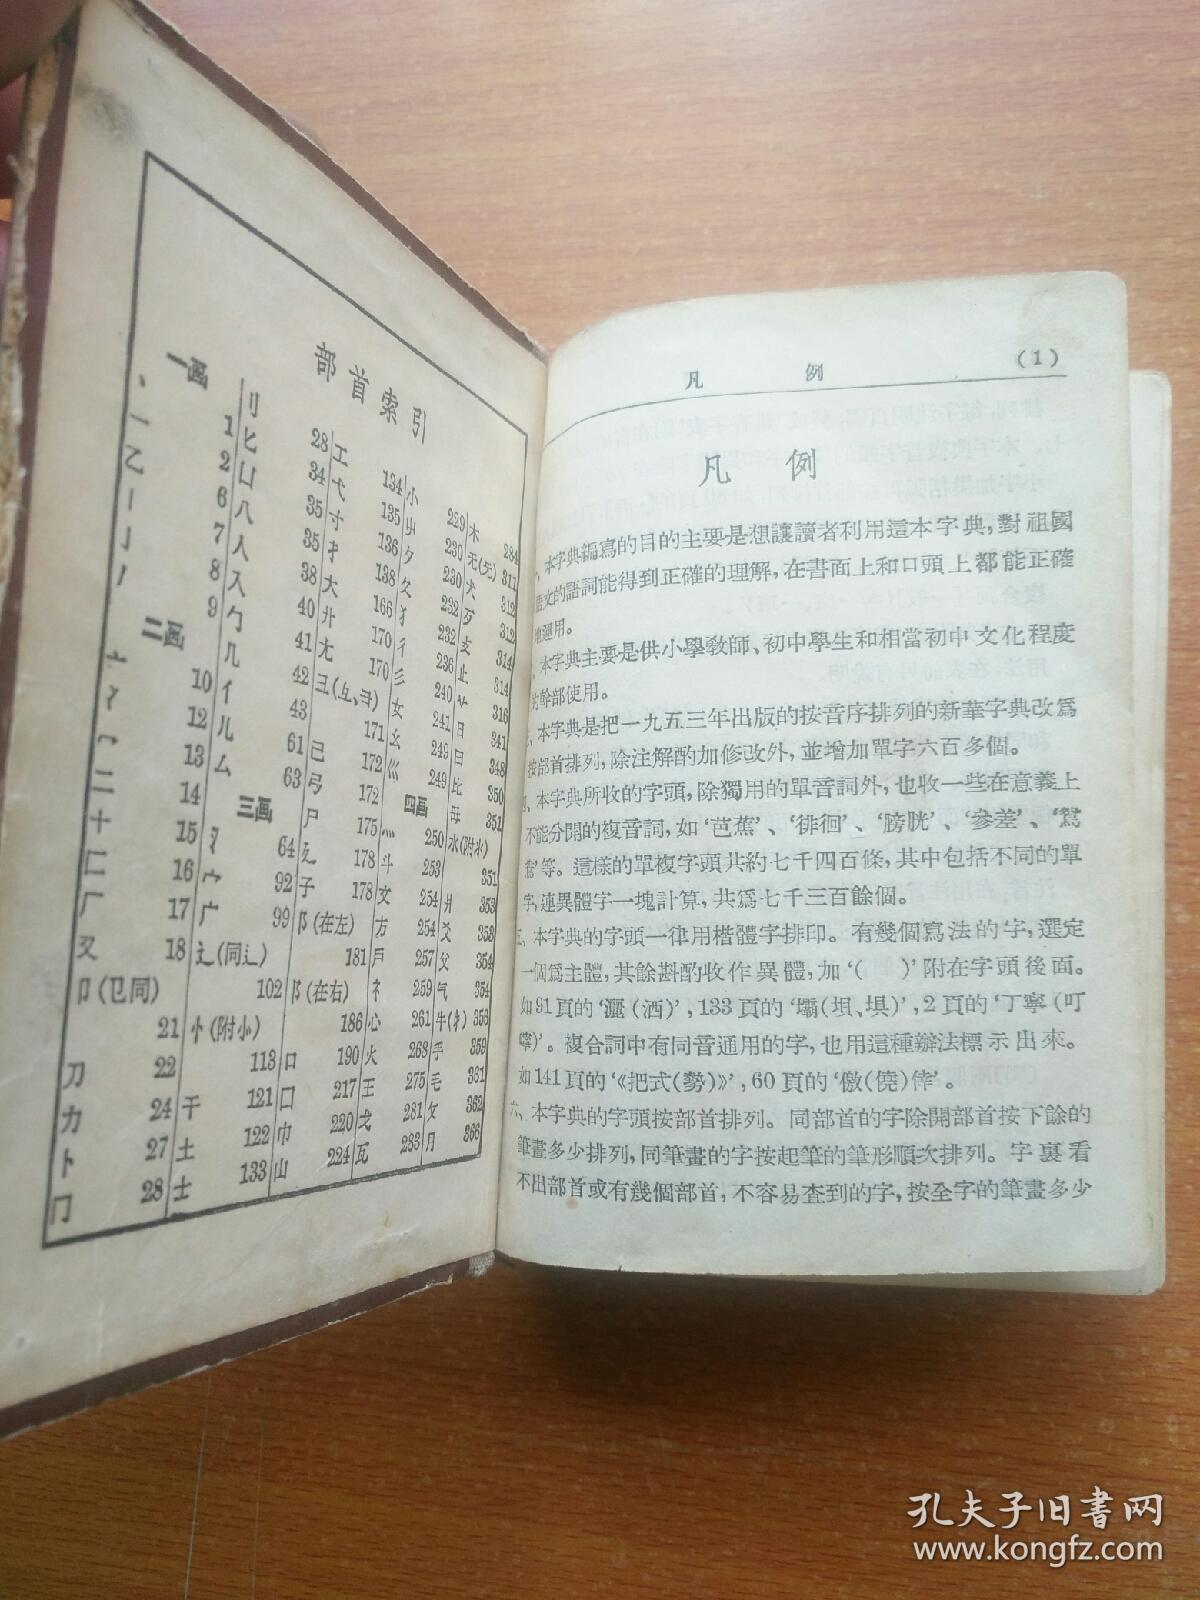 部首索引
一画
丶 1
一 2
乙 6
丨 7
亅 8
丿 9
二画
亠 10
冫 12
冖 13
二 14
十 15
匚 16
厂 17
又 18
卩(㔾同) 21
刀 22
力 24
卜 27
冂 28
刂 28
匕 34
凵 35
八 35
人 38
入 40
勹 41
几 42
亻 43
儿 61
厶 63
三画
氵 64
宀 92
广 99
辶(同辶) 102
忄(附㣺) 113
干 121
土 122
士 133
工 134
弋 135
寸 136
扌 138
大 166
廾 170
尢 170
彐(彑、⺕) 171
己 172
弓 172
尸 175
廴 178
子 178
阝(在左) 181
阝(在右) 186
口 190
囗 217
巾 220
山 224
小 229
屮 230
夕 230
夂 232
犭 232
彳 236
彡 240
女 241
幺 249
巛 249
四画
灬 250
斗 253
文 254
方 254
戶 257
礻 259
心 261
火 268
王 275
戈 281
瓦 283
木 284
无(旡) 311
犬 312
歹 312
支 314
止 314
日 341
曰 348
比 350
毋 351
水(附氺) 351
爿 353
爻 353
父 354
气 354
牛(牜) 356
手 359
毛 361
攵 362
月 366
凡 例 (1)
凡 例
一、本字典編寫的目的主要是想讓讀者利用這本字典,對祖國
語文的語詞能得到正確的理解,在書面上和口頭上都能正確
地運用。
本字典主要是供小學敎師、初中學生和相當初中文化程度
的幹部使用。
三、本字典是把一九五三年出版的按音序排列的新華字典改爲
按部首排列,除注解酌加修改外,並增加單字六百多個。
四、本字典所收的字頭,除獨用的單音詞外,也收一些在意義上
不能分開的複音詞,如‘芭蕉’、‘徘徊’、‘膀胱’、‘參差’、‘鴛
鴦’等。這樣的單複字頭共約七千四百條,其中包括不同的單
字,連異體字一塊計算,共爲七千三百餘個。
五、本字典的字頭一律用楷體字排印。有幾個寫法的字,選定
一個爲主體,其餘斟酌收作異體,加‘( )’附在字頭後面。
如91頁的‘灑(洒)’,133頁的‘壩(垻、埧)’,2頁的‘丁寧(叮
嚀)’。複合詞中有同音通用的字,也用這種辦法標示出來。
如141頁的‘《把式(勢)》’,60頁的‘儌(僥)倖’。
六、本字典的字頭按部首排列。同部首的字除開部首按下餘的
筆畫多少排列,同筆畫的字按起筆的筆形順次排列。字裏看
不出部首或有幾個部首,不容易查到的字,按全字的筆畫多少
孔夫子旧书网
www.kongfz.com